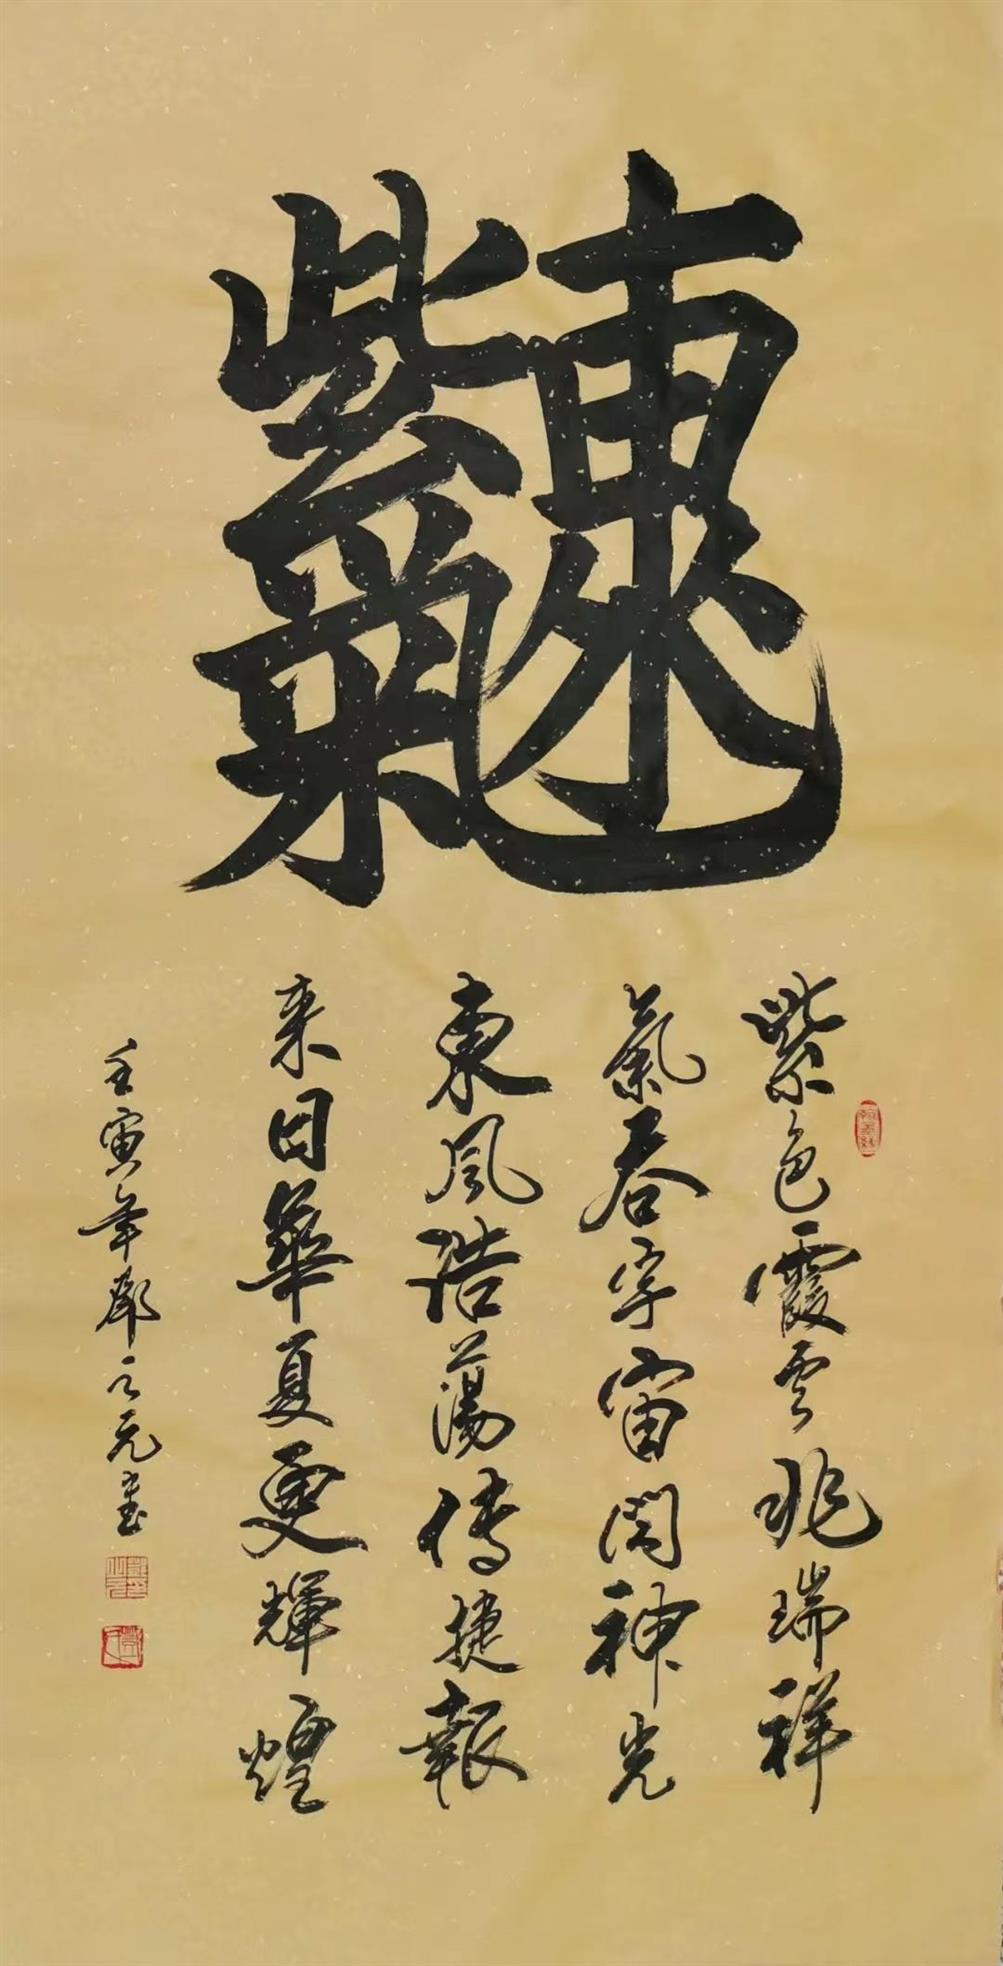 紫氣東來
紫色霞雲兆瑞祥
氣吞宇宙閃神光
東風浩蕩傳捷報
来日華夏更輝煌
壬寅年之元書